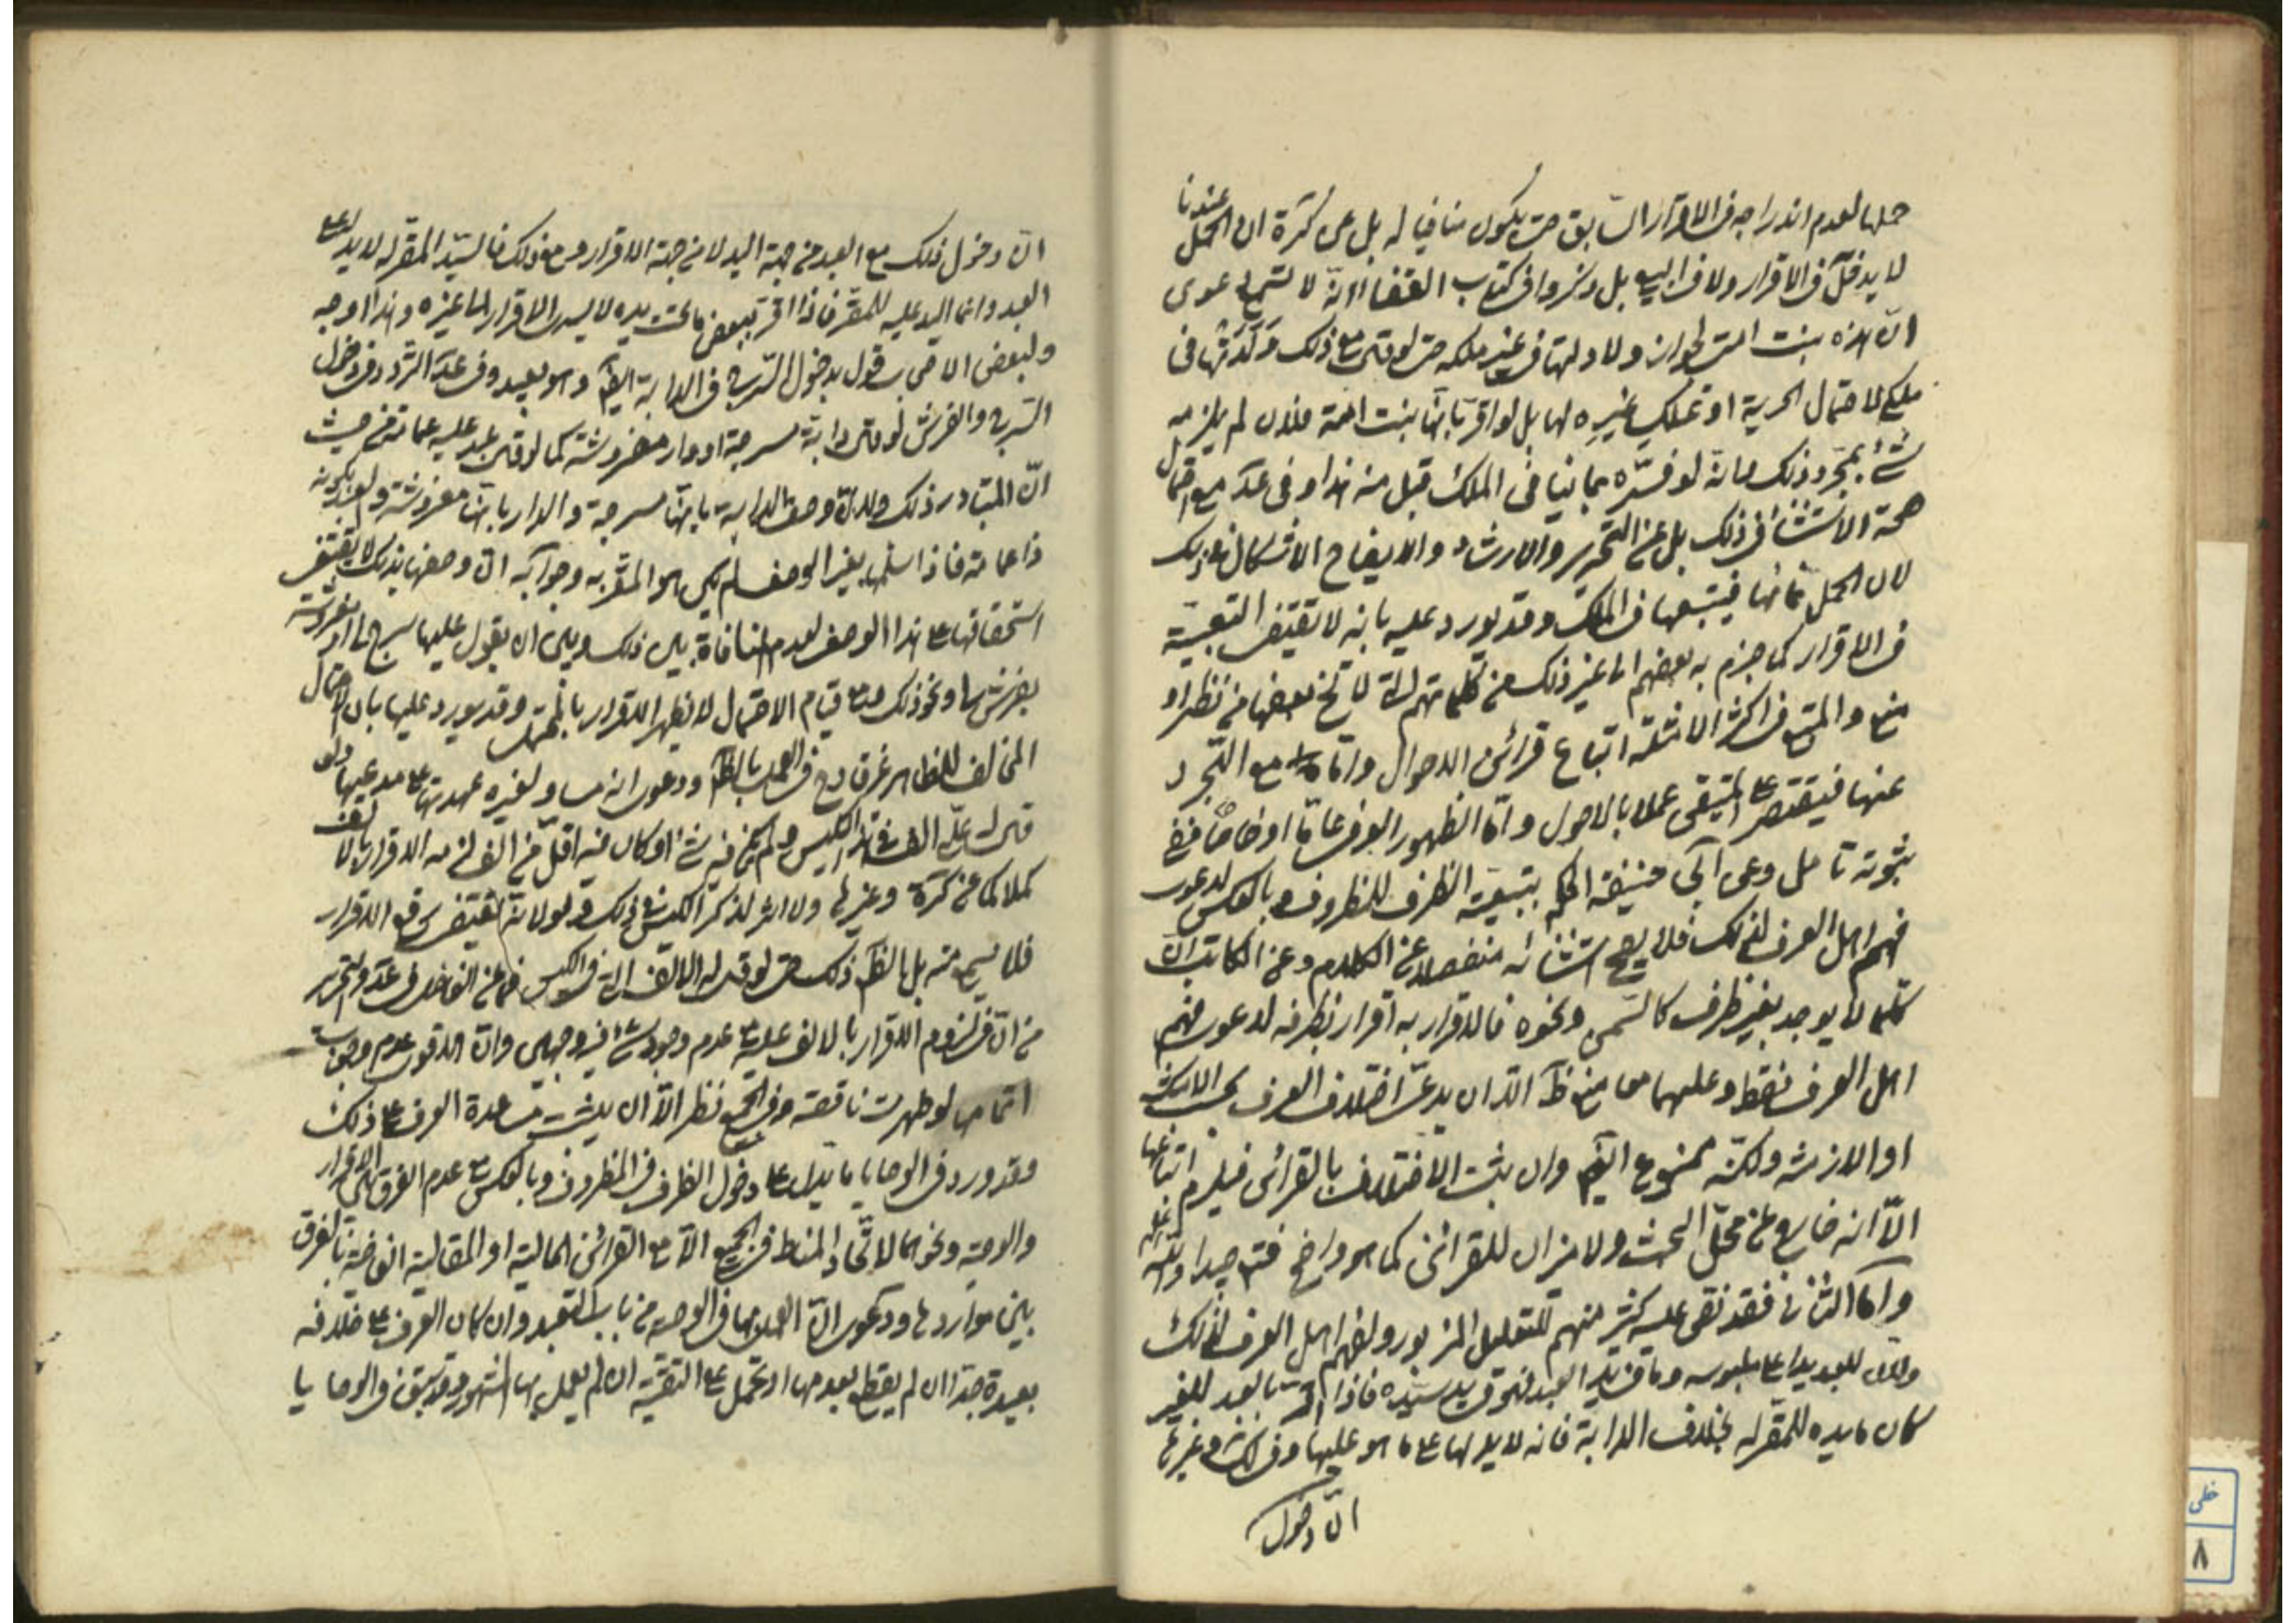 حملها لعدم اندراجه في الاقرار السابق حتى يكون منافيا له بل عن كرة ان الحمل عندنا
لا يدخل في الاقرار ولا في البيع بل ذكروا في كتاب القضاء انه لا تسمع دعوى
ان هذه بنت امتي لجواز ولادتها في غير ملكه حتى لو قال مع ذلك ولدتها في
ملكي لاحتمال الحرية او تملك غيره لها بل لو اقر بانها بنت امة فلان لم يلزمه
شئ بمجرد ذلك فانه لو فسره بما ينافي الملك قبل منه هذا وفي عد مع احتمال
صحة الاستثناء في ذلك بل عن التحرير والارشاد والايضاح الاشكال في ذلك
لان الحمل نماؤها فيتبعها في الملك وقد يورد عليه بانه لا تقتضي التبعية
في الاقرار كما جزم به بعضهم الى غير ذلك من كلماتهم التي لا تخ بعضها من نظر او
منع والمتبع في اكثر الامثلة اتباع قرائن الاحوال واما مع التجرد
عنها فيقتصر على المتيقن عملا بالاصول واما الظهور العرفي عاما او خاصا ففي
ثبوته تامل وعن ابي حنيفة الحكم بتبعية الظرف للمظروف وبالعكس لدعوى
فهم اهل العرف لذلك فلا يصح استثنائه منفصلا عن الكلام وعن الكاتب ان
كلما لا يوجد بغير ظرف كالسمن ونحوه فالاقرار به اقرار بظرفه لدعوى فهم
اهل العرف فقط وعليهما معا منع ظ الا ان يدعى اختلاف العرف بحسب الامكنة
او الازمنة ولكنه ممنوع ايضا وان ثبت الاختلاف بالقرائن فيلزم اتباعها
الا انه خارج عن محل البحث ولا ميزان للقرائن كما هو واضح فتم جيدا والله العالم
واما الثاني فقد نص عليه كثير منهم للتعليل المزبور ولفهم اهل العرف لذلك
ولان للعبد يدا على ملبوسه وما في يد العبد فهو في يد سيده فاذا اقر بالعبد للغير
كان ما بيده للمقر له بخلاف الدابة فانه لا يد لها على ما هو عليها وفي لك وغيرها
ان دخول
ان دخول ذلك مع العبد من جهة اليد لا من جهة الاقرار ومع ذلك فالسيد المقر له لا يد له على
العبد وانما اليد عليه للمقر فاذا اقر ببعض ما تحت يده لا يسري الاقرار الى غيره وهذا اوجه
ولبعض الاصحاب قول بدخول السرج في الدابة ايضا وهو بعيد وفي عد التردد في دخول
السرج والفرش لو قال دابة مسرجة او دار مفروشة كما لو قال عبد عليه عمامة من حيث
ان المتبادر ذلك ولان وصف الدابة بانها مسرجة والدار بانها مفروشة والعبد بكونه
ذا عمامة فاذا سلمها بغير الوصف لم يكن هو المقر به وجوابه ان وصفها بذلك لا يقتضي
استحقاقها على هذا الوصف لعدم المنافاة بين ذلك وبين ان يقول عليها سرج لي او مفروشة
بفرش لي ونحو ذلك ومع قيام الاحتمال لا يظهر الاقرار بالمحتمل وقد يورد عليها بان الاحتمال
المخالف للظاهر غير قادح في العمل بالظ ودعوى انه مساو لغيره عهدتها على مدعيها ولو
قال له علي الف في هذا الكيس ولم يكن فيه شئ او كان فيه اقل من الف لزمه الاقرار بالالف
كملا كما عن كرة وغيرها ولا اثر لذكر الكيس في ذلك ولو لانه يقتضي رفع الاقرار
فلا يسمع منه بل الظ ذلك حتى لو قال له الالف التي في الكيس فما عن الفاضل في عد والتحرير
من ان في لزوم الاقرار بالالف عليه مع عدم وجود شئ فيه وجهين وان الاقوى عدم وجوب
اتمامها لو ظهرت ناقصة وفي الجميع نظر الا ان يثبت مساعدة العرف على ذلك
وقد ورد في الوصايا ما يدل على دخول الظرف في المظروف وبالعكس مع عدم الفرق بين الاقرار
والوصية ونحوهما لاتحاد المناط في الجميع الا مع القرائن الحالية او المقالية القاضية بالفرق
بين مواردها ودعوى ان العمل بها في الوصية من باب التعبد وان كان العرف على خلافه
بعيدة جدا ان لم يقطع بعدمها او تحمل على التقية ان لم يعمل بها المشهور وقد سبق في الوصايا
خطى
٨